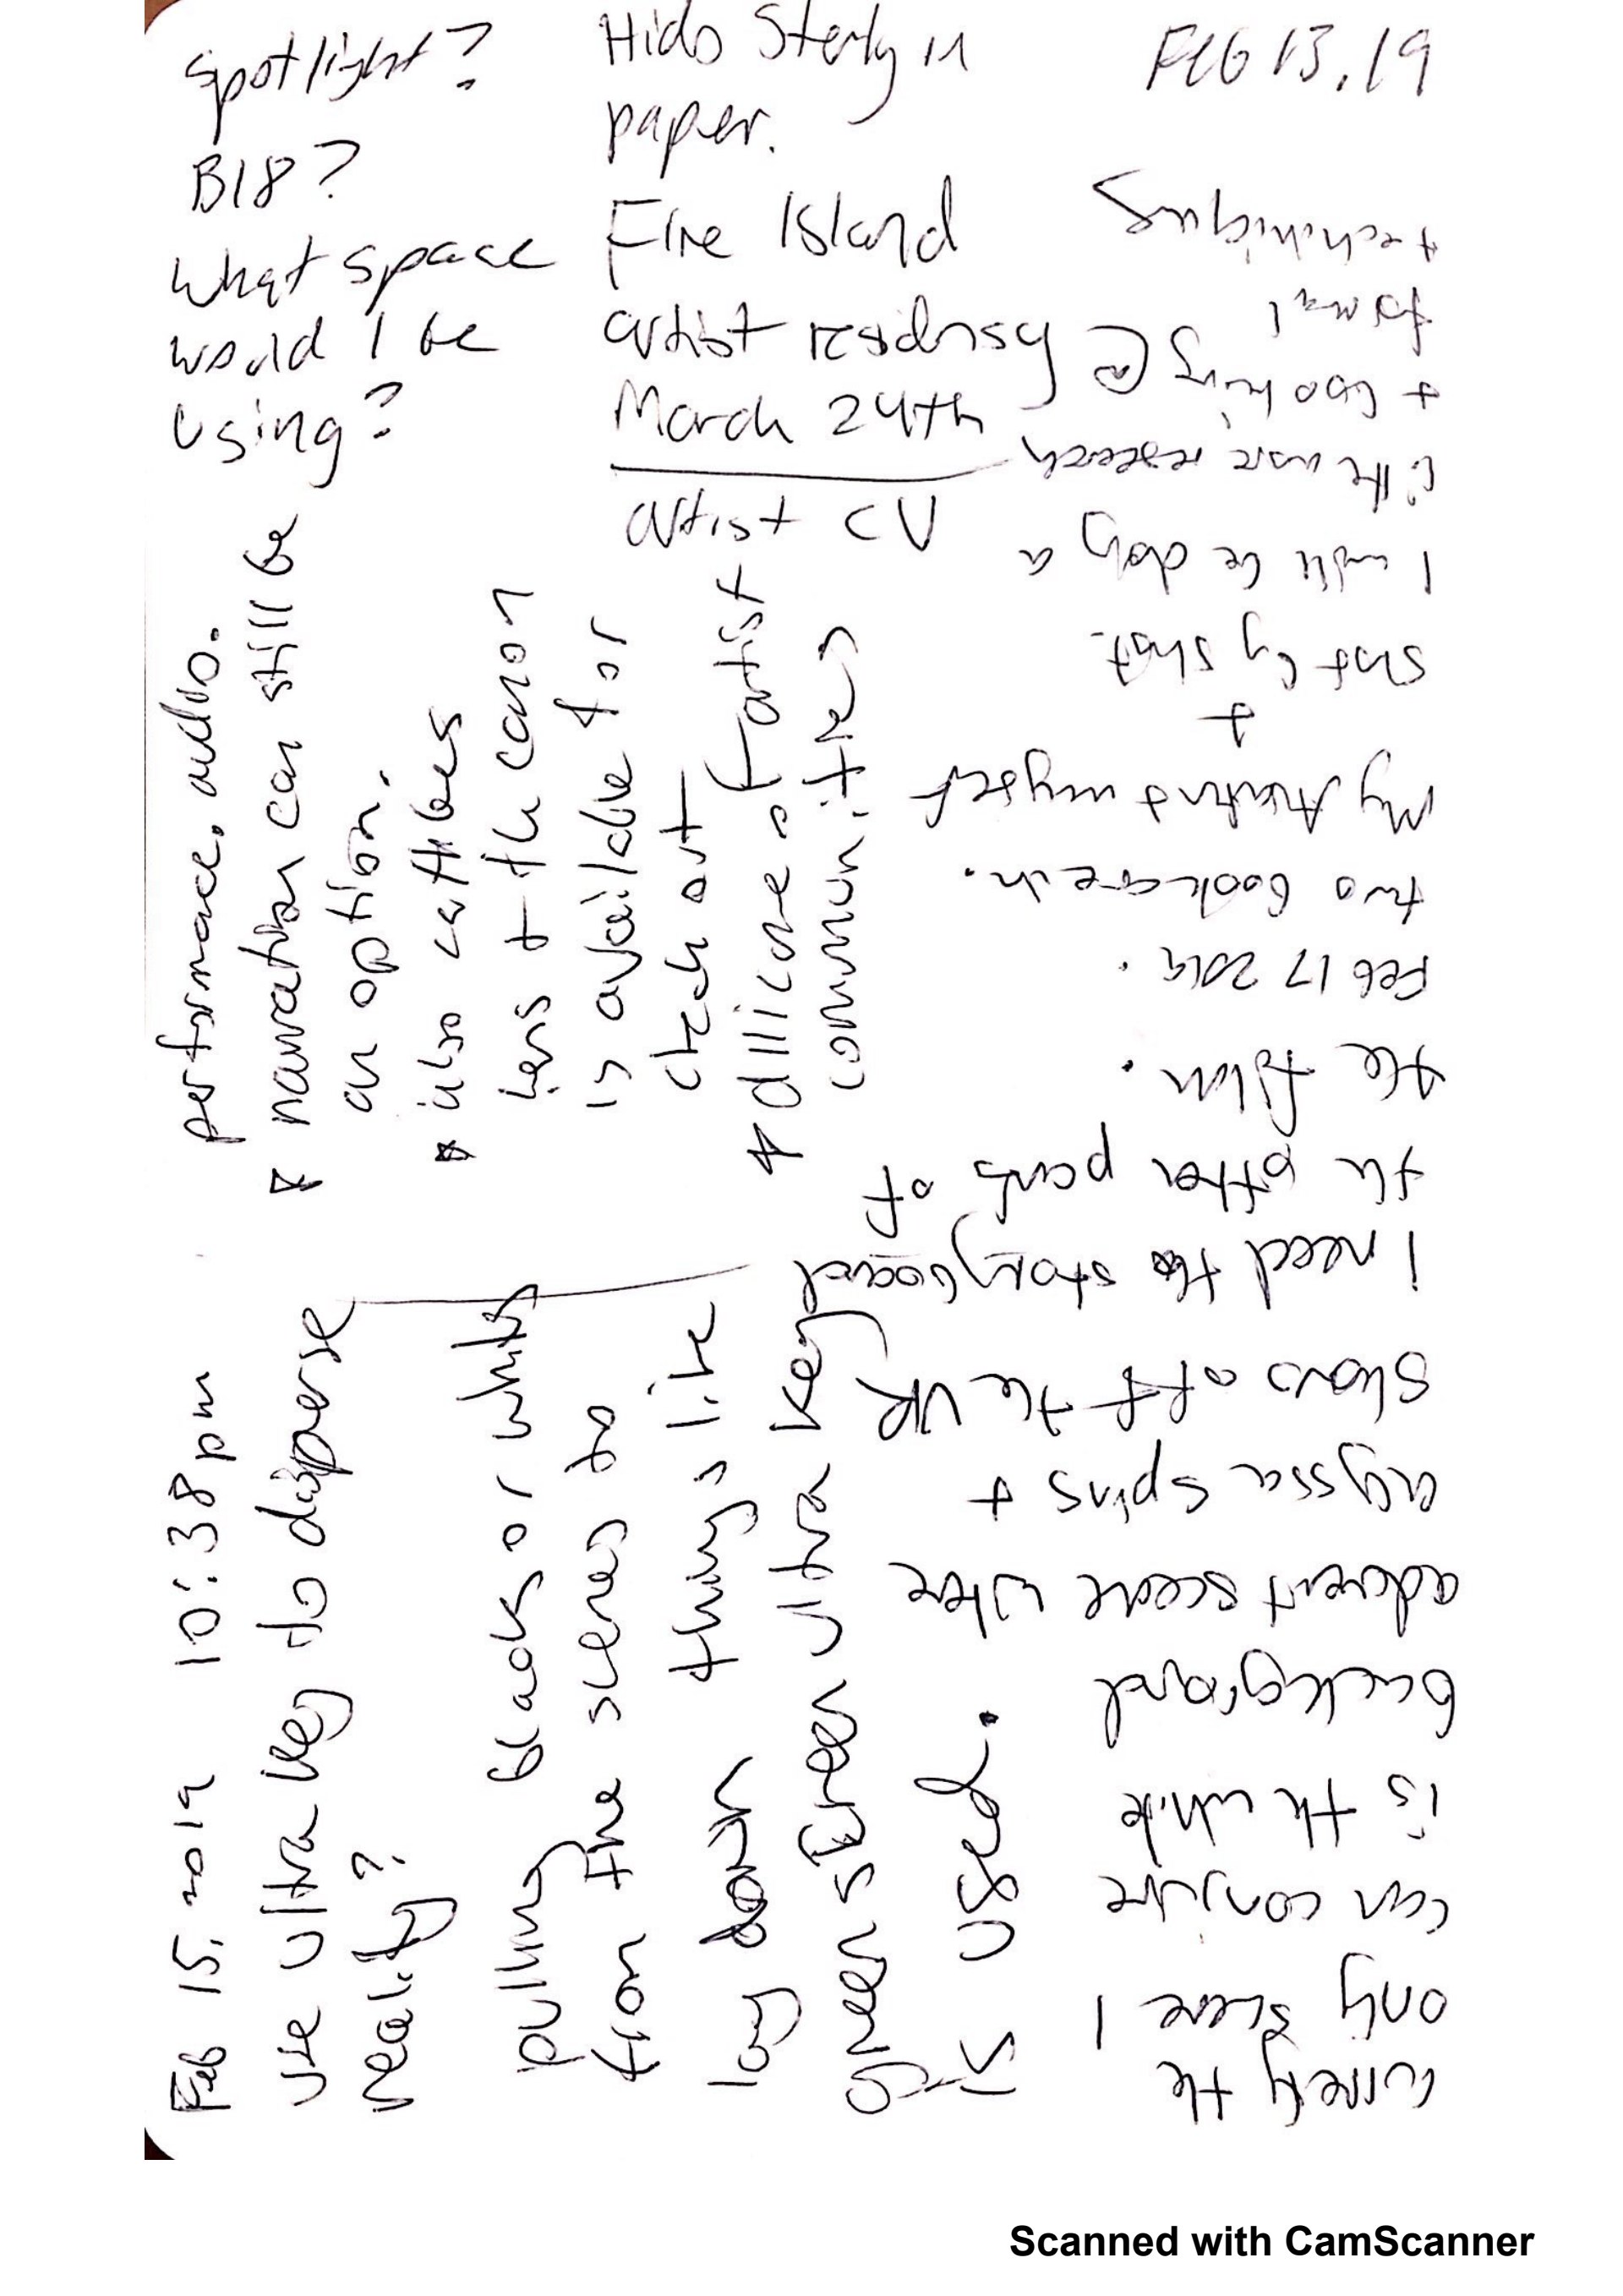 spotlight?
B18?
What space
would I be
using?
Hido Sterly in
paper.
Fire Island
artist residnsy
March 24th
artist CV
FEB 13, 19
Feb 15, 2019 10:38 pm
use ultra key to disperse
reality?
pulling blacks or whits
from the scenes to
lay down things like
green screen ultra key
is used.
performace. audio.
narration can still be
an option.
also cat bes
lens + the canon
is available for
check out
of artist
communities
Currently the
only scene I
can conjure
is the while
background
adverert scene where
alyssa spins +
shows off the VR
I need the storyboard
the other parts of
the film.
Feb 17 2019.
two books are in.
My and myself
+
shot by shot.
I will be doing a
little more research
+ looking @
formal
techniniqus
Scanned with CamScanner